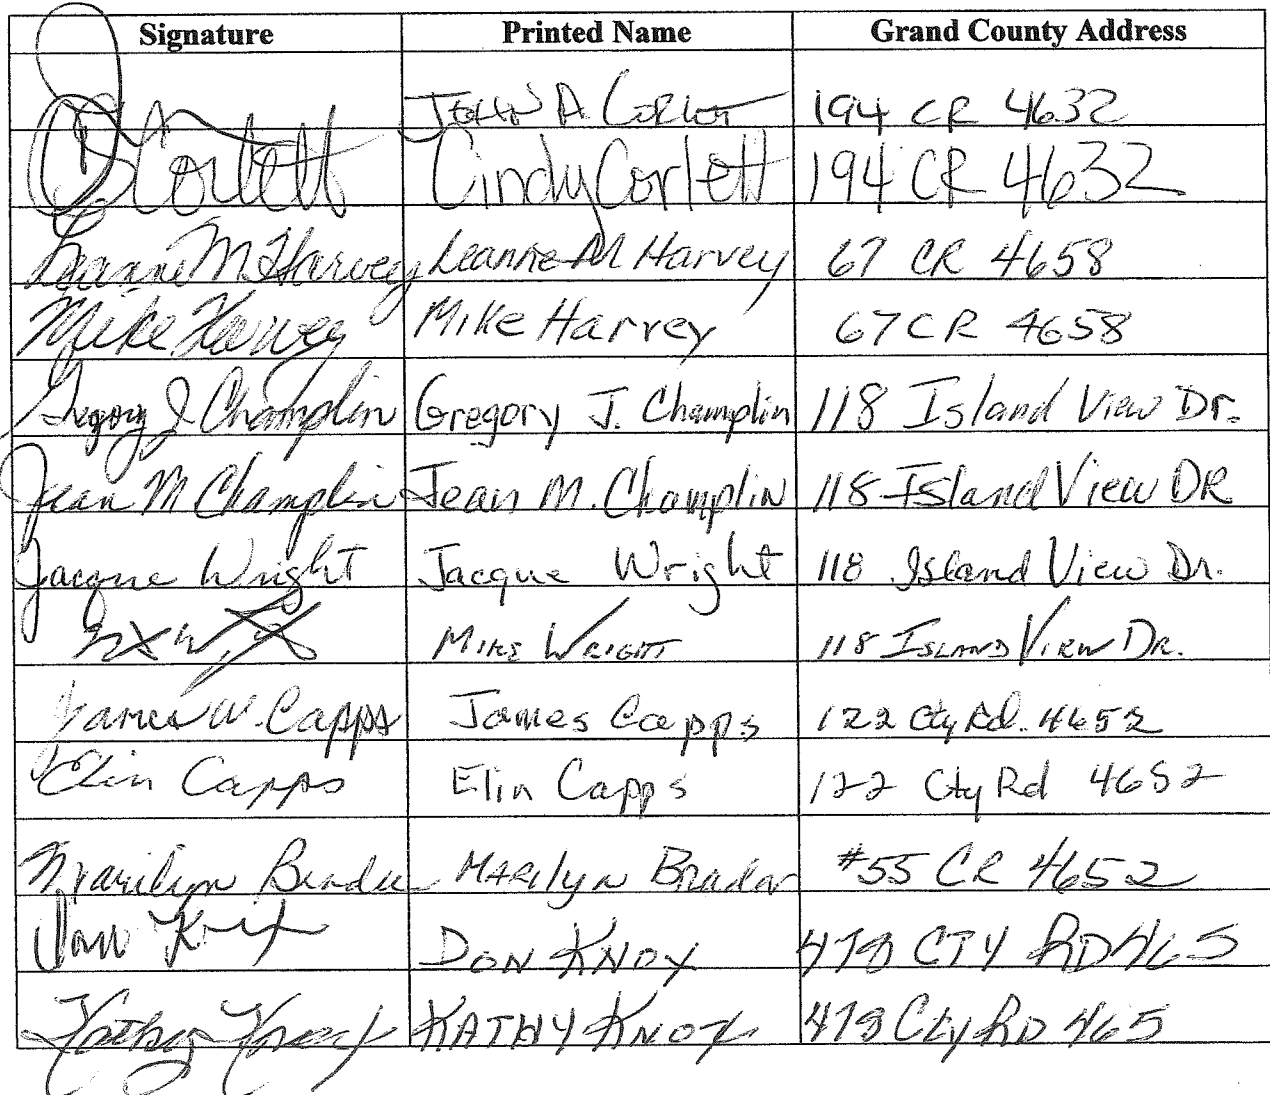 Signature Printed Name Grand County Address
JOHN A. 194 CR 4632
Corlett Cindy Corlett 194 CR 4632
Leanne M Harvey Leanne M Harvey 67 CR 4658
Mike Harvey Mike Harvey 67 CR 4658
Gregory J. Champlin Gregory J. Champlin 118 Island View Dr.
Jean M Champlin Jean M. Champlin 118 Island View DR
Jacque Wright Jacque Wright 118 Island View Dr.
MIKE WRIGHT 118 ISLAND VIEW DR.
James W. Capps James Capps 122 Cty Rd. 4652
Elin Capps Elin Capps 122 Cty Rd 4652
Marilyn Marilyn #55 CR 4652
Don Knox DON KNOX CTY RD 465
Kathy Knox KATHY KNOX Cty RD 465